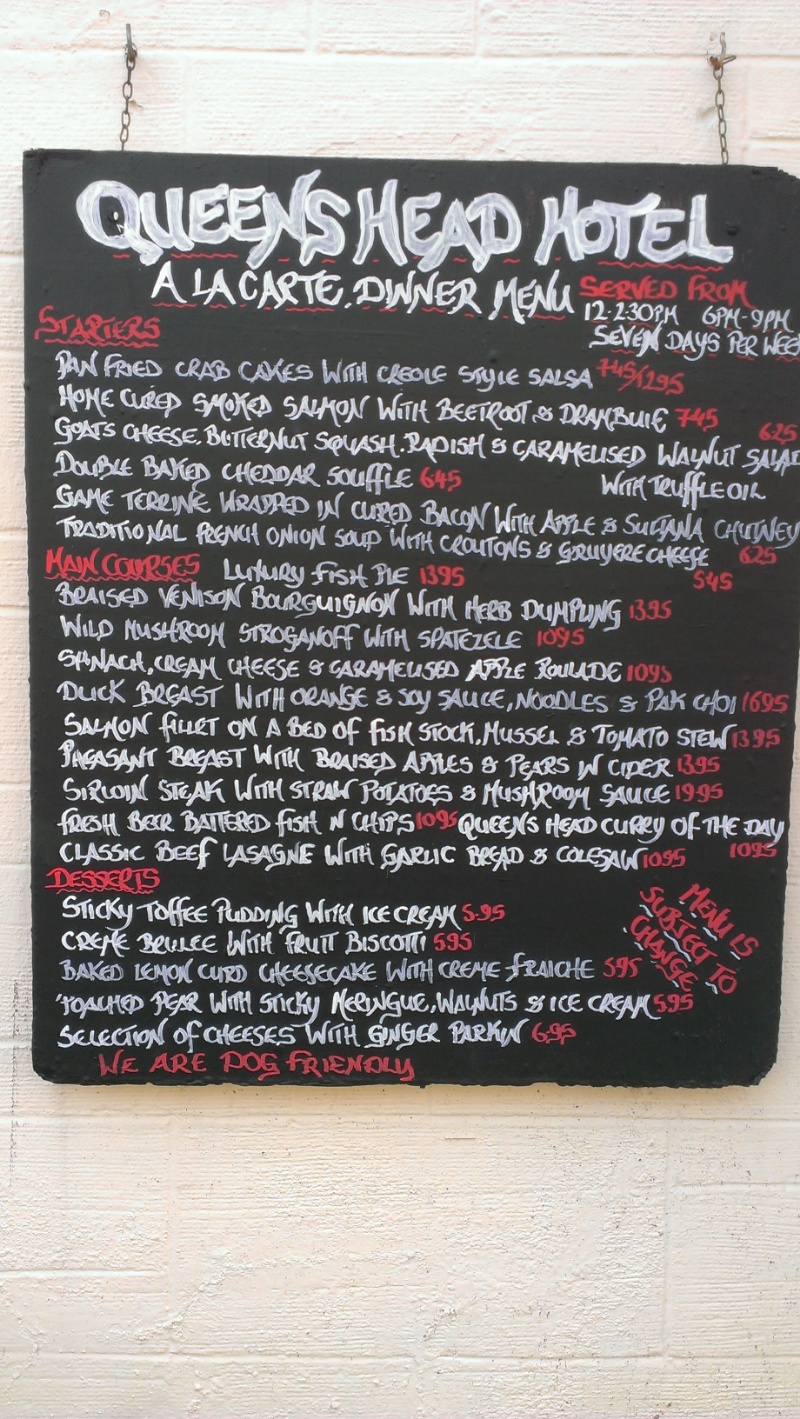 QUEENS HEAD HOTEL
A LA CARTE. DINNER MENU SERVED FROM
12-2.30PM 6PM-9PM
STARTERS
SEVEN DAYS PER WEEK
PAN FRIED CRAB CAKES WITH CREOLE STYLE SALSA 745/1295
HOME CURED SMOKED SALMON WITH BEETROOT & DRAMBUIE 745
GOATS CHEESE, BUTTERNUT SQUASH. RADISH & CARAMELISED WALNUT SALAD 625
WITH TRUFFLE OIL
DOUBLE BAKED CHEDDAR SOUFFLE 645
GAME TERRINE WRAPPED IN CURED BACON WITH APPLE & SULTANA CHUTNEY
625
TRADITIONAL FRENCH ONION SOUP WITH CROUTONS & GRUYERE CHEESE
545
MAIN COURSES LUXURY FISH PIE 1395
BRAISED VENISON BOURGUIGNON WITH HERB DUMPLING 1395
WILD MUSHROOM STROGANOFF WITH SPATEZELE 1095
SPINACH, CREAM CHEESE & CARAMELISED APPLE ROULADE 1095
DUCK BREAST WITH ORANGE & SOY SAUCE, NOODLES & PAK CHOI 1695
SALMON FILLET ON A BED OF FISH STOCK, MUSSEL & TOMATO STEW 1395
PHEASANT BREAST WITH BRAISED APPLES & PEARS IN CIDER 1395
SIRLOIN STEAK WITH STRAW POTATOES & MUSHROOM SAUCE 1995
FRESH BEER BATTERED FISH N CHIPS 1095 QUEEN'S HEAD CURRY OF THE DAY
1095
CLASSIC BEEF LASAGNE WITH GARLIC BREAD & COLESAW 1095
DESSERTS
STICKY TOFFEE PUDDING WITH ICE CREAM 5.95
CREME BRULEE WITH FRUIT BISCOTTI 595
BAKED LEMON CURD CHEESECAKE WITH CREME FRAICHE 595
POACHED PEAR WITH STICKY MERINGUE, WALNUTS & ICE CREAM 595
SELECTION OF CHEESES WITH GINGER PARKIN 6.95
WE ARE DOG FRIENDLY
MENU IS
SUBJECT TO
CHANGE